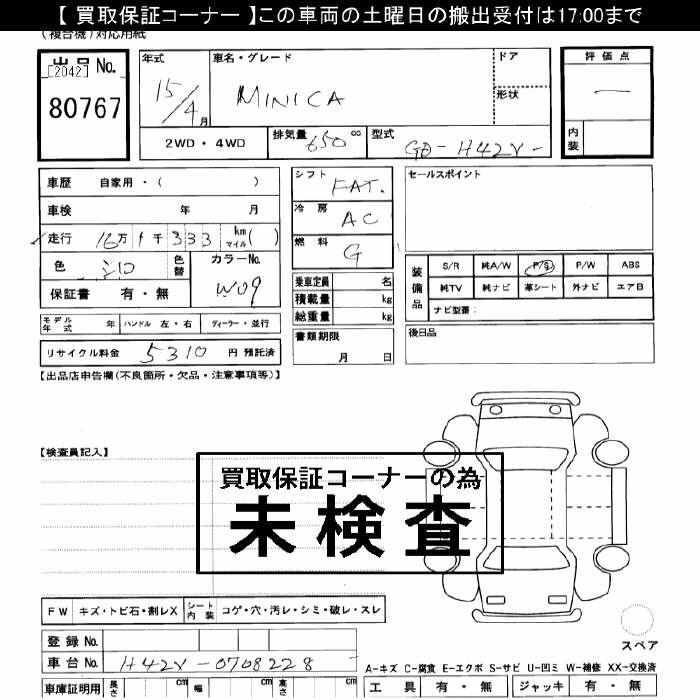 【 買取保証コーナー 】この車両の土曜日の搬出受付は17:00まで
(複合機)対応用紙
出品 No.
[2042]
80767
年式
15/4月
車名・グレード
MINICA
ドア
形状
評価点
内装
2WD・4WD
排気量 650 cc
型式 GD-H42V-
車歴 自家用・( )
車検 年 月
走行 16万 1千 333 km マイル ( )
色 シロ
色替
カラーNo. W09
保証書 有・無
シフト FAT.
冷房 AC
燃料 G
乗車定員 名
積載量 kg
総重量 kg
書類期限
月 日
セールスポイント
装備品
S/R 純A/W P/S P/W ABS
純TV 純ナビ 革シート 外ナビ エアB
ナビ型番:
後日品
モデル年式 年 ハンドル 左・右 ディーラー・並行
リサイクル料金 5310 円 預託済
【出品店申告欄(不良箇所・欠品・注意事項等)】
【検査員記入】
買取保証コーナーの為
未検査
FW キズ・トビ石・割レX シート内装 コゲ・穴・汚レ・シミ・破レ・スレ
登録 No.
車台 No. H42V-0708228
車庫証明用 長さ cm 幅 cm 高さ cm
スペア
A-キズ C-腐食 E-エクボ S-サビ U-凹ミ W-補修 XX-交換済
工具 有・無 ジャッキ 有・無